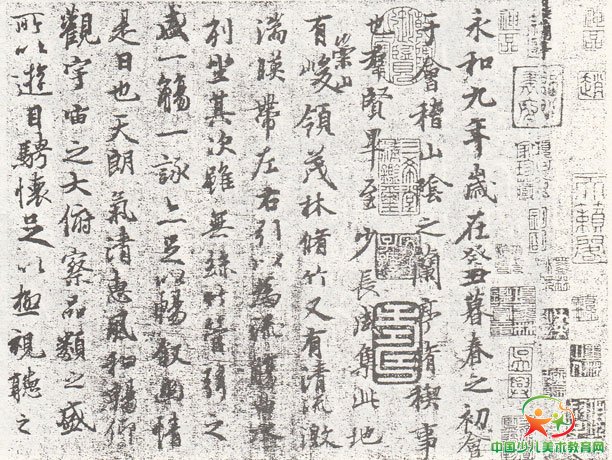 永和九年歲在癸丑暮春之初會
于會稽山陰之蘭亭脩稧事
也羣賢畢至少長咸集此地
有崇山峻領茂林脩竹又有清流激
湍暎帶左右引以為流觴曲水
列坐其次雖無絲竹管弦之
盛一觴一詠亦足以暢敘幽情
是日也天朗氣清惠風和暢仰
觀宇宙之大俯察品類之盛
所以遊目騁懷足以極視聽之
趙
天籟閣
中国少儿美术教育网